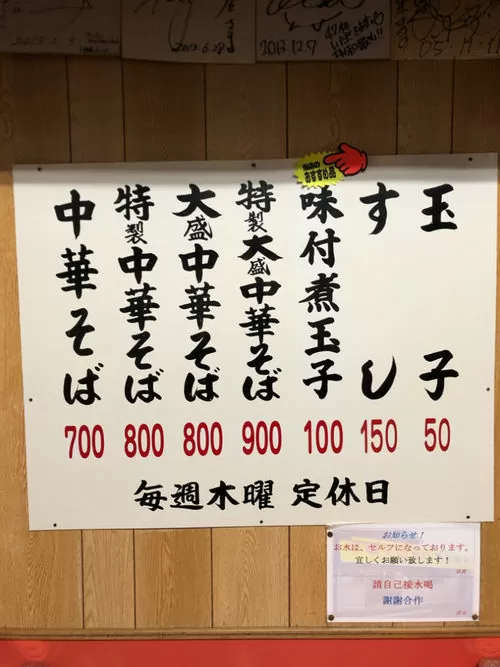 2013.6.28
2013.12.7
中華そば
700
特製中華そば
800
大盛中華そば
800
特製大盛中華そば
900
当店の
おすすめ品
味付煮玉子
100
すし
150
玉子
50
毎週木曜 定休日
お知らせ!
お水は、セルフになっております。
宜しくお願い致します!
店主
請自己接水喝
謝謝合作
店主